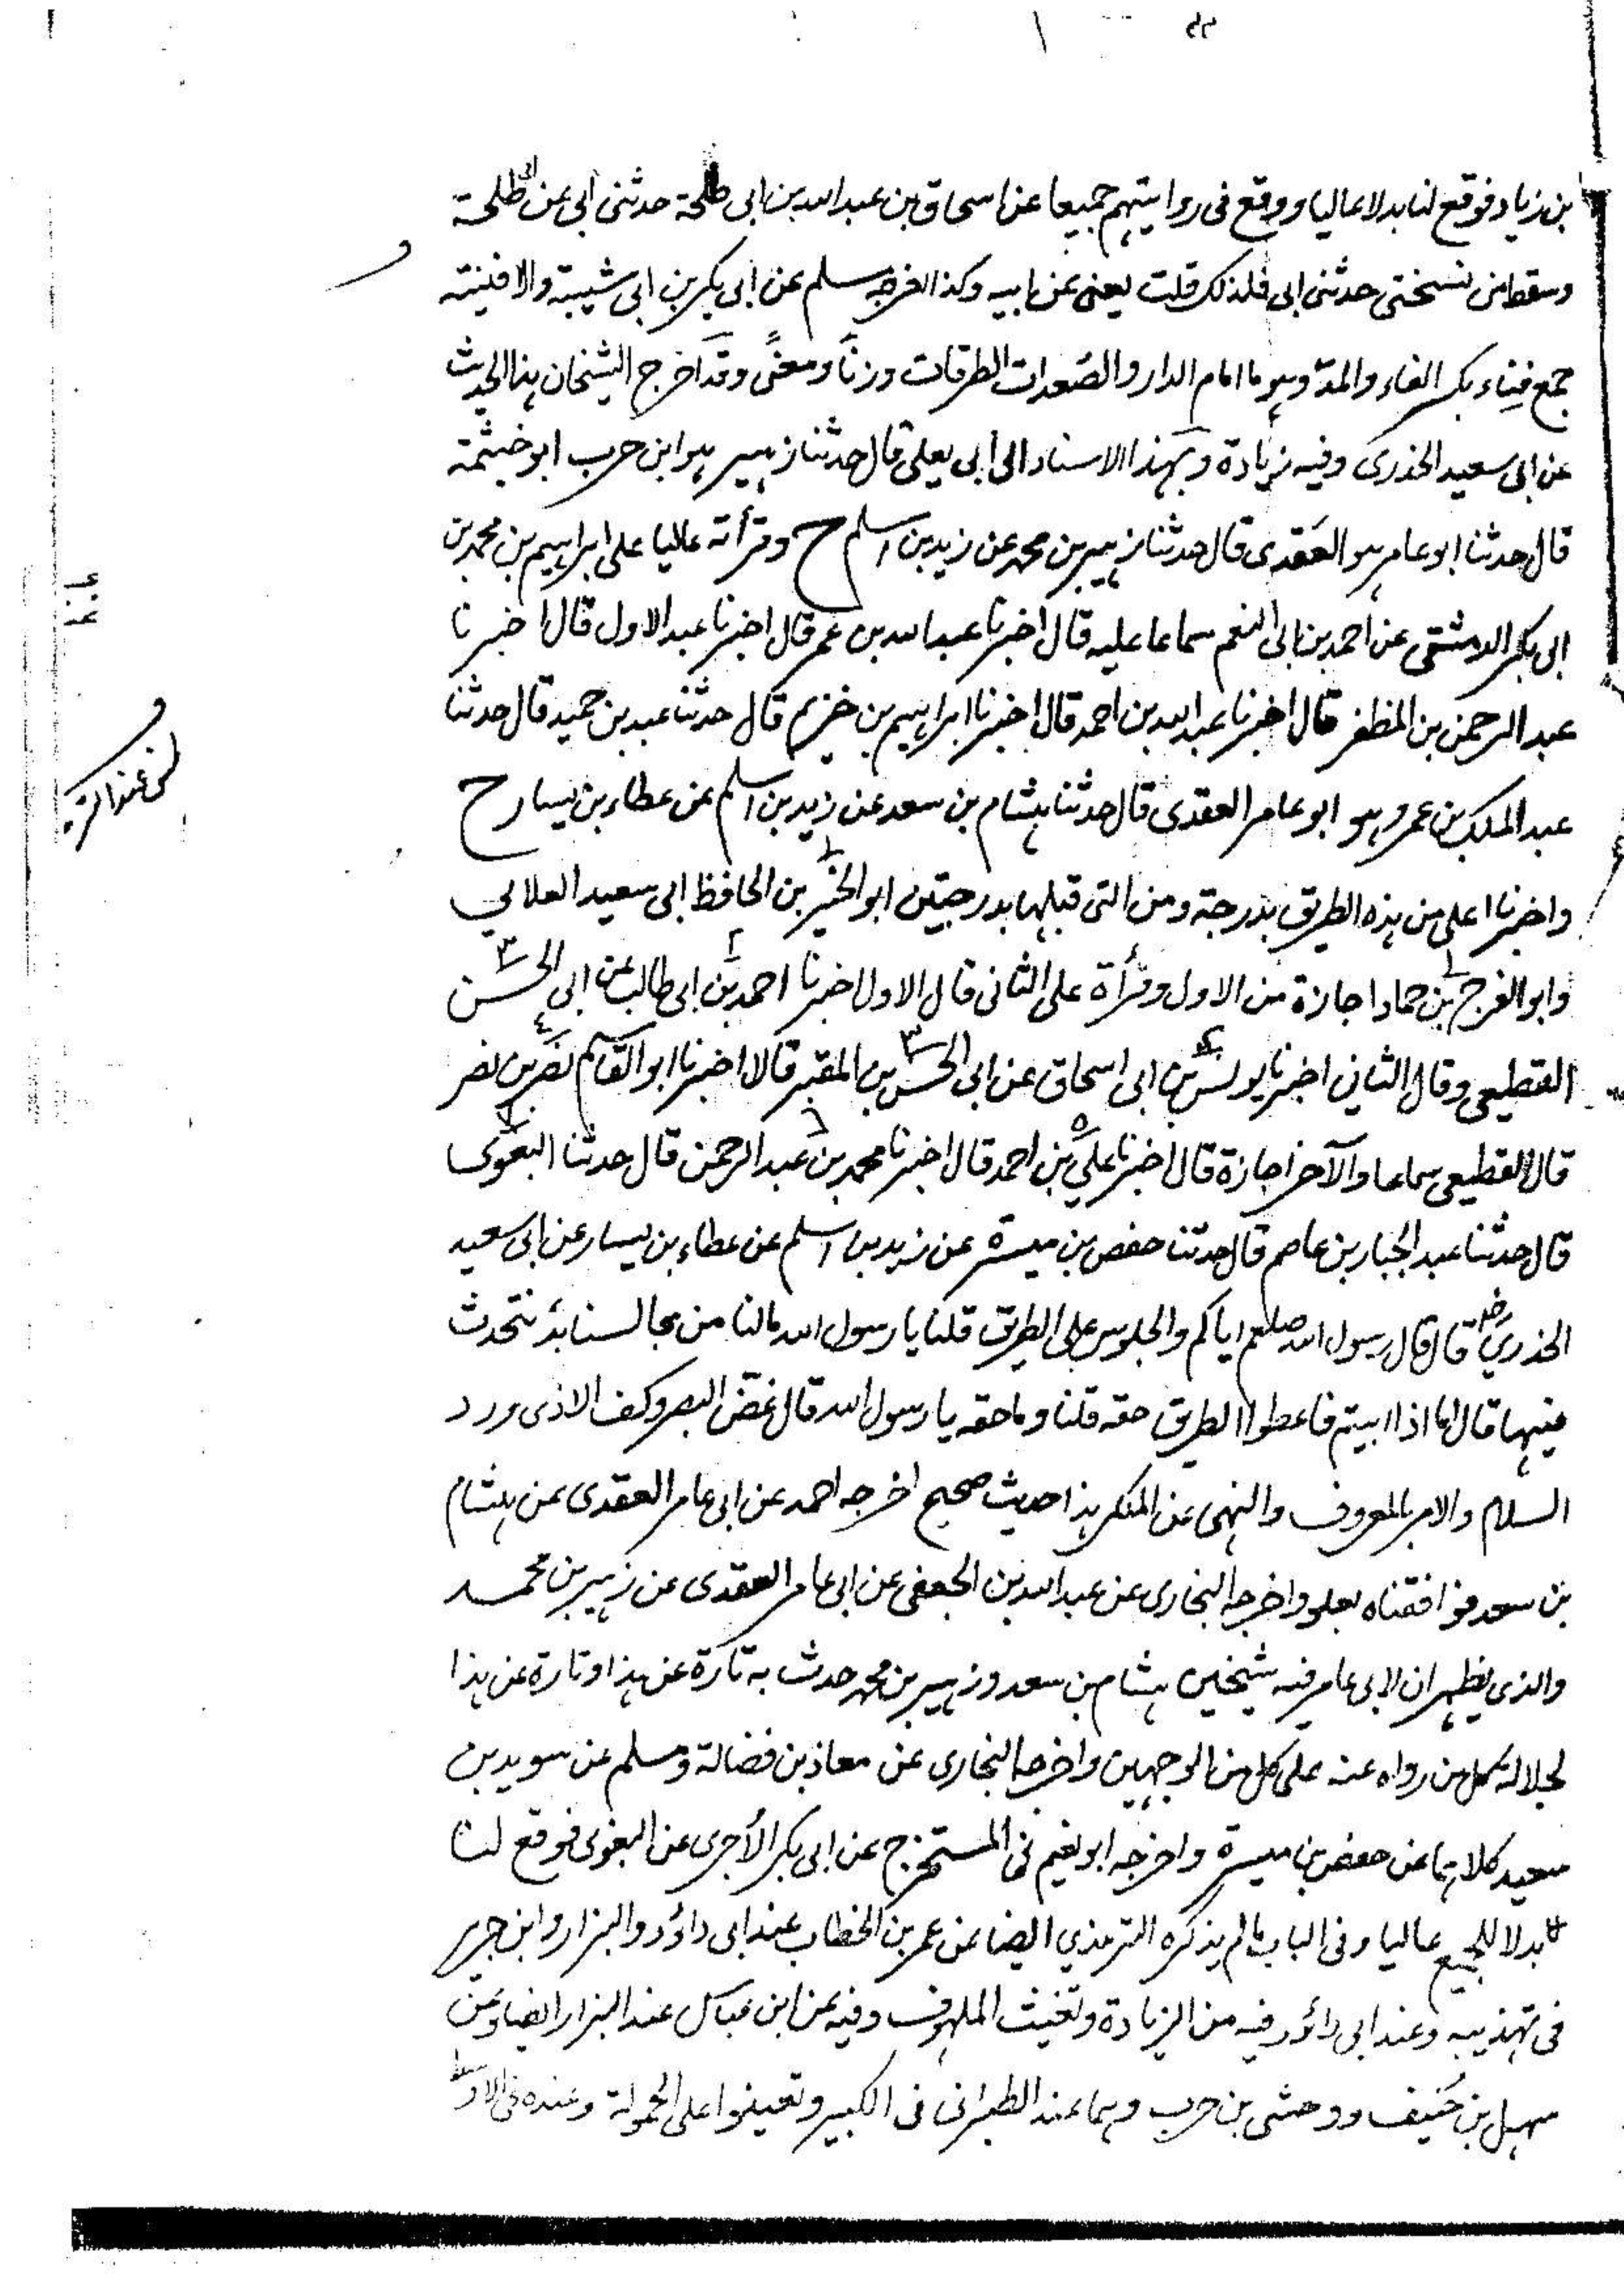 بن زياد فوقع لنا بدلا عاليا ووقع فى روايتهم جميعا عن اسحاق بن عبد الله بن ابى طلحة حدثنى ابى عن ابى طلحة
وسقط من نسختى حدثنى ابى فلذلك قلت يعنى عن ابيه وكذا اخرجه مسلم عن ابى بكر بن ابى شيبة والافنية
جمع فِناء بكسر الفاء والمدّ وهو ما امام الدار والصُعدات الطرقات وزنًا ومعنًى وقد اخرج الشيخان هذا الحديث
عن ابى سعيد الخدرى وفيه زيادة وبهذا الاسناد الى ابى يعلى قال حدثنا زهير هو ابن حرب ابو خيثمة
قال حدثنا ابو عامر هو العَقَدى قال حدثنا زهير بن محمد عن زيد بن اسلم ح وقرأته عاليا على ابراهيم بن محمد بن
ابى بكر الدمشقى عن احمد بن ابى النعم سماعا عليه قال اخبرنا عبد الله بن عمر قال اخبرنا عبد الاول قال اخبرنا
عبد الرحمن بن المظفر قال اخبرنا عبد الله بن احمد قال اخبرنا ابراهيم بن خزيم قال حدثنا عبد بن حميد قال حدثنا
عبد الملك بن عمرو هو ابو عامر العقدى قال حدثنا هشام بن سعد عن زيد بن اسلم عن عطاء بن يسار ح
واخبرنا اعلى من هذه الطريق بدرجة ومن التى قبلها بدرجتين ابو الخير بن الحافظ ابى سعيد العلائي
وابو الفرج بن حماد اجازة من الاول وقرأة على الثانى قال الاول اخبرنا احمد بن ابى طالب عن ابى الحسن
القطيعى وقال الثاني اخبرنا يونس بن ابى اسحاق عن ابى الحسن بن المقير قالا اخبرنا ابو القاسم نصر بن نصر
قال القطيعى سماعا والآخر اجازة قال اخبرنا علي بن احمد قال اخبرنا محمد بن عبد الرحمن قال حدثنا البغوى
قال حدثنا عبد الجبار بن عاصم قال حدثنا حفص بن ميسرة عن زيد بن اسلم عن عطاء بن يسار عن ابى سعيد
الخدري رضـ قال قال رسول الله صلعم اياكم والجلوس على الطريق قلنا يا رسول الله مالنا من مجالسنا بدّ نتحدث
فيها قال اما اذا ابيتم فاعطوا الطريق حقه قلنا وما حقه يا رسول الله قال غضّ البصر وكف الاذى ورد
السلام والامر بالمعروف والنهى عن المنكر هذا حديث صحيح اخرجه احمد عن ابى عامر العقدى عن هشام
بن سعد فوافقناه بعلو واخرجه البخارى عن عبد الله بن الجعفى عن ابى عامر العقدى عن زهير بن محمد
والذى يظهر ان لابى عامر فيه شيخين هشام بن سعد وزهير بن محمد حدث به تارة عن هذا وتارة عن هذا
لجلالة كل من رواه عنه على كل من الوجهين واخرجه البخارى عن معاذ بن فضالة ومسلم عن سويد بن
سعيد كلاهما عن حفص بن ميسرة واخرجه ابو نعيم فى المستخرج عن ابى بكر الأجرى عن البغوى فوقع لنا
بدلا للجميع عاليا وفى الباب مالم يذكره الترمذي ايضا عن عمر بن الخطاب عند ابى داؤد والبزار وابن جرير
فى تهذيبه وعند ابى داؤد فيه من الزيادة وتغيث الملهوف وفيه عن ابن عباس عند البزار ايضا وعن
سهل بن حنيف ووحشى بن حرب وهما عند الطبرانى فى الكبير وتعينوا على الحمولة وعنده فى الاوسط